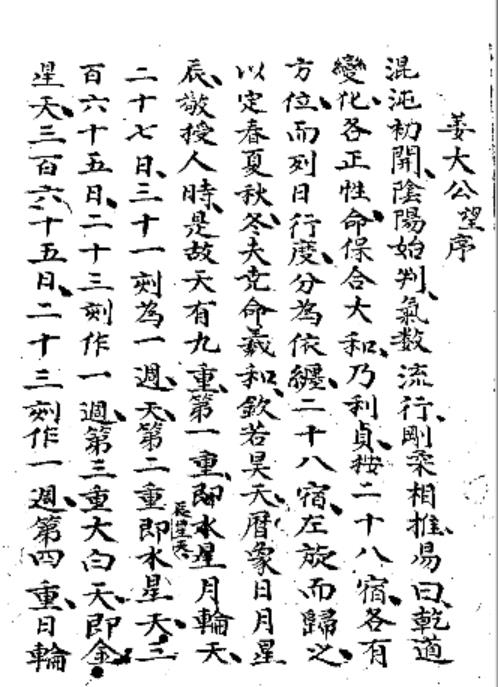 姜大公望序
混沌初開、陰陽始判、氣数流行、剛柔相推、易曰、乾道
變化、各正性命、保合大和、乃利貞、按二十八宿、各有
方位、而列日行度、分為依纏、二十八宿、左旋而歸之、
以定春夏秋冬、夫堯命羲和、欽若昊天、暦象日月星
辰、敬授人時、是故天有九重、第一重、即水星月輪天、
辰星天
二十七日、三十一刻為一週、天、第二重即水星天、三
百六十五日、二十三刻作一週、第三重大白天、即金
星天、三百六、十五日、二十三刻作一週、第四重、日輪